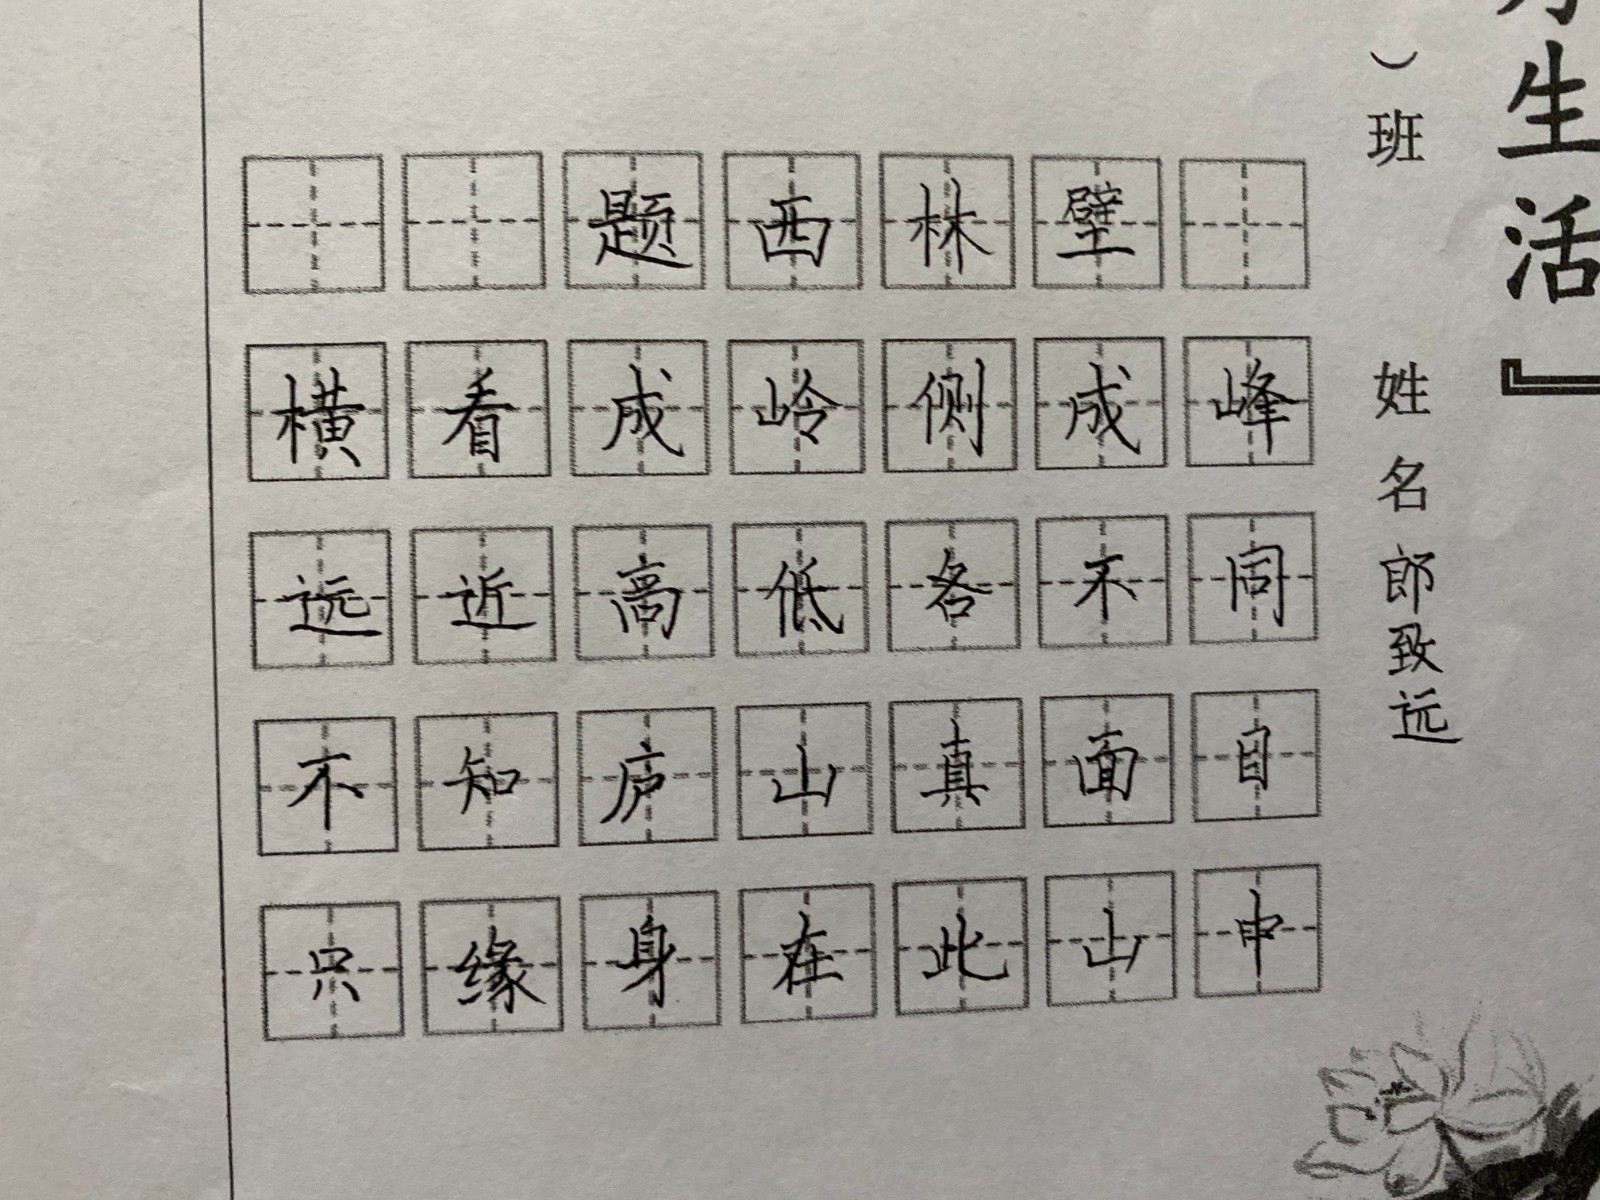 生活』
）班 姓名郎致远
题西林壁
横看成岭侧成峰
远近高低各不同
不知庐山真面目
只缘身在此山中